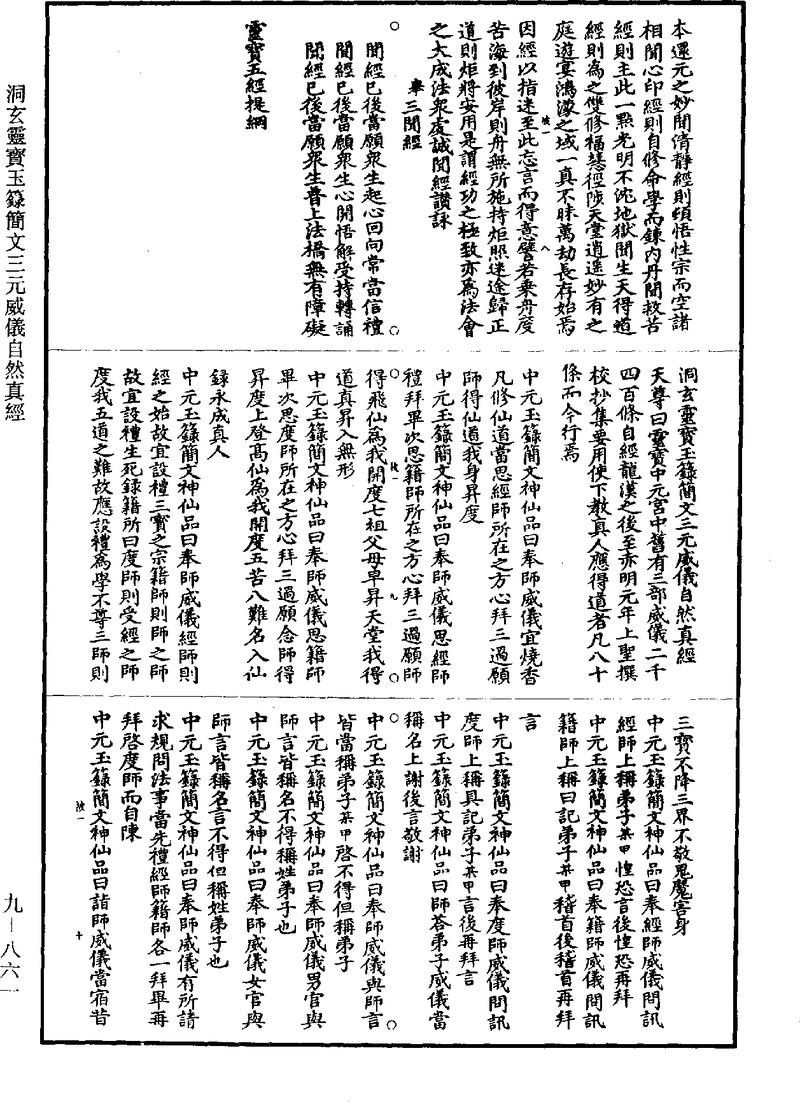 本還元之妙聞清靜經則頓悟性宗而空諸
相聞心印經則自修命學而鍊内丹聞救苦
經則主此一點光明不沈地獄聞生天得道
經則為之雙修福慧徑陟天堂逍遥妙有之
庭遊宴鴻濛之域一真不昧萬劫長存始焉
因經以指迷至此忘言而得意譬若乗舟度
苦海到彼岸則舟無所施持炬照迷途歸正
道則炬將安用是謂經功之極致亦為法會
之大成法衆虔誠聞經讚詠
舉三聞經
聞經已後當願衆生起心回向常當信禮
聞經已後當願衆生心開悟解受持轉誦
聞經已後當願衆生普上法橋無有障礙
靈寶五經提綱
洞玄靈寶玉籙簡文三元威儀自然真經
天尊曰靈寶中元宫中舊有三部威儀二千
四百條自經龍漢之後至赤明元年上聖撰
校抄集要用使下教真人應得道者凡八十
條而令行焉
中元玉籙簡文神仙品曰奉師威儀宜燒香
凡修仙道當思經師所在之方心拜三過願
師得仙道我身昇度
中元玉籙簡文神仙品曰奉師威儀思經師
禮拜畢次思籍師所在之方心拜三過願師
得飛仙為我開度七祖父母早昇天堂我得
道真昇入無形
中元玉籙簡文神仙品曰奉師威儀思籍師
畢次思度師所在之方心拜三過願念師得
昇度上登髙仙為我開度五苦八難名入仙
録永成真人
中元玉籙簡文神仙品曰奉師威儀經師則
經之始故宜設禮三寳之宗籍師則師之師
故宜設禮生死録籍所曰度師則受經之師
度我五道之難故應設禮為學不尊三師則
三寳不降三界不敬鬼魔害身
中元玉籙簡文神仙品曰奉經師威儀問訊
經師上稱弟子某甲惶恐言後惶恐再拜
中元玉籙簡文神仙品曰奉籍師威儀問訊
籍師上稱曰記弟子某甲稽首後稽首再拜
言
中元玉籙簡文神仙品曰奉度師威儀問訊
度師上稱具記弟子某甲言後再拜言
中元玉籙簡文神仙品曰師荅弟子威儀當
稱名上謝後言敬謝
中元玉籙簡文神仙品曰奉師威儀與師言
皆當稱弟子某甲啓不得但稱弟子
中元玉籙簡文神仙品曰奉師威儀男官與
師言皆稱名不得稱姓弟子也
中元玉籙簡文神仙品曰奉師威儀女官與
師言皆稱名言不得但稱姓弟子也
中元玉籙簡文神仙品曰奉師威儀有所請
求規問法事當先禮經師籍師各一拜畢再
拜啓度師而自陳
中元玉籙簡文神仙品曰詣師威儀當宿昔
洞玄靈寶玉籙簡文三元威儀自然真經
九－八六一